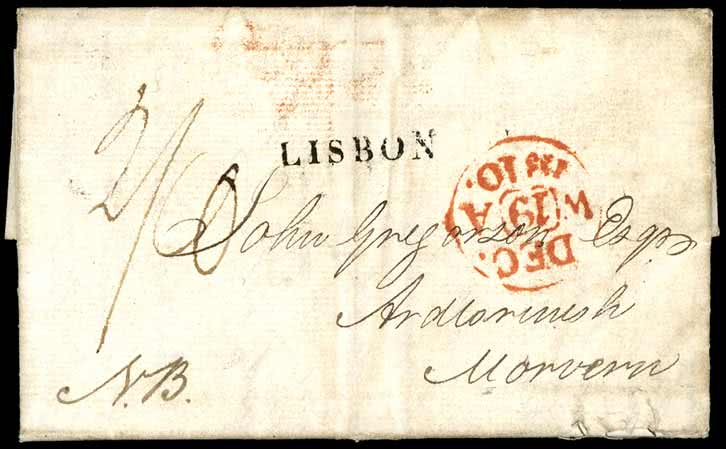 LISBON
2/
John Gregorson Esqr
Ardtornish
Morvern
N.B.
DEC.
W 19 A
10.